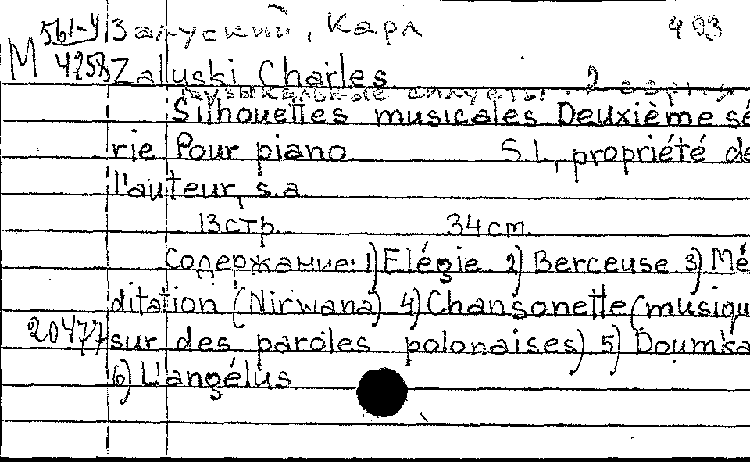 М 561-4 Залуский, Карл 403
4258 Zaluski Charles
Музыкальные силуэты. 2 серия
Silhouettes musicales Deuxième sé
rie Pour piano S.L, propriété de
l'auteur, s.a
13 стр. 34 cm
Содержание: 1) Elégie 2) Berceuse 3) Mé
ditation (Nirwana) 4) Chansonette (musiqu
20477 sur des paroles polonaises) 5) Doumka
6) L'angélus